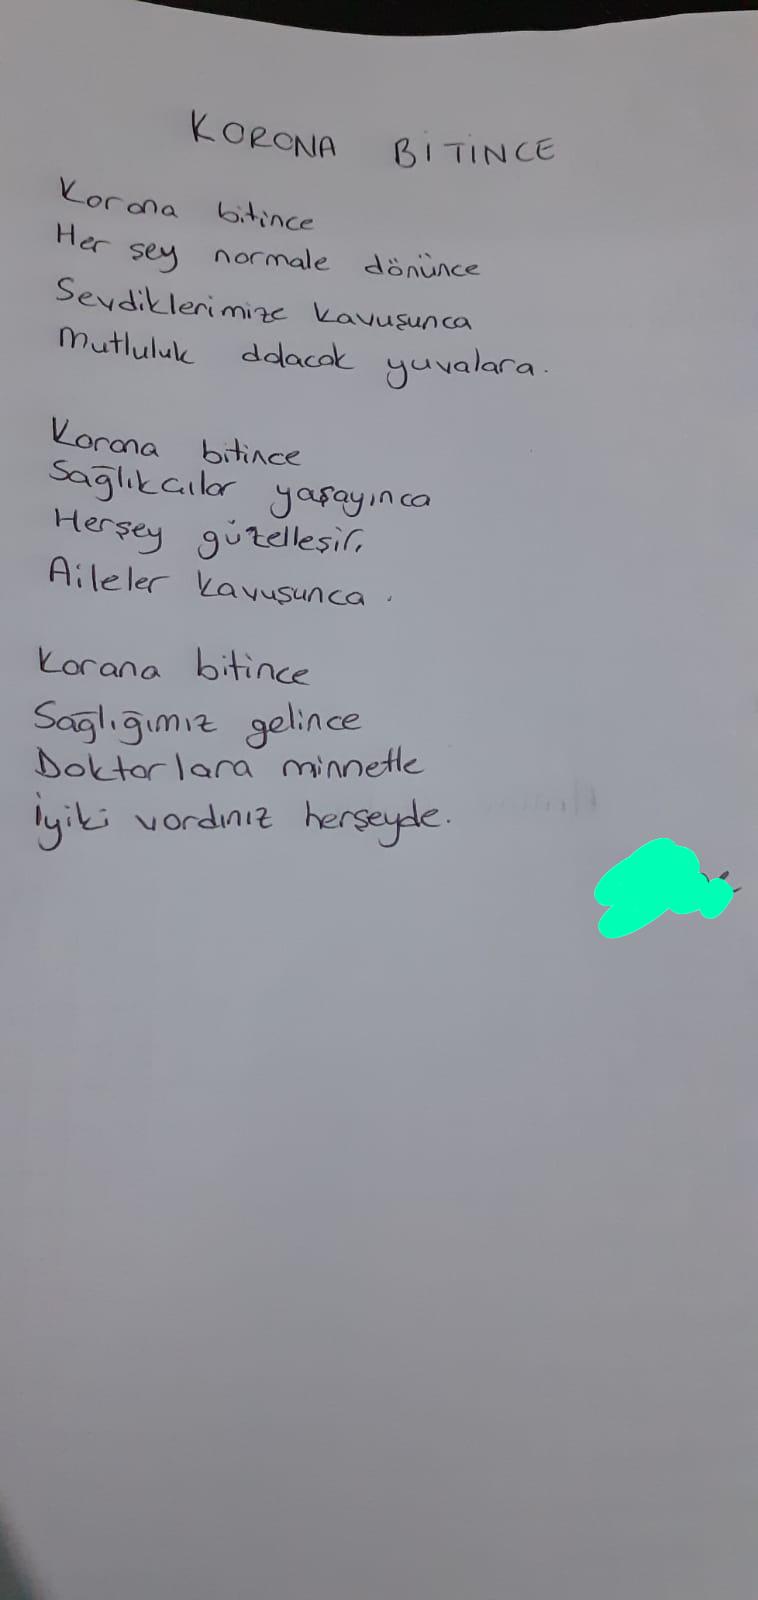 KORONA BİTİNCE
Korona bitince
Her şey normale dönünce
Sevdiklerimize kavuşunca
Mutluluk dolacak yuvalara.
Korona bitince
Sağlıkcılar yaşayınca
Herşey güzelleşir,
Aileler kavuşunca.
Korana bitince
Sağlığımız gelince
Doktorlara minnetle
İyiki vardınız herşeyde.